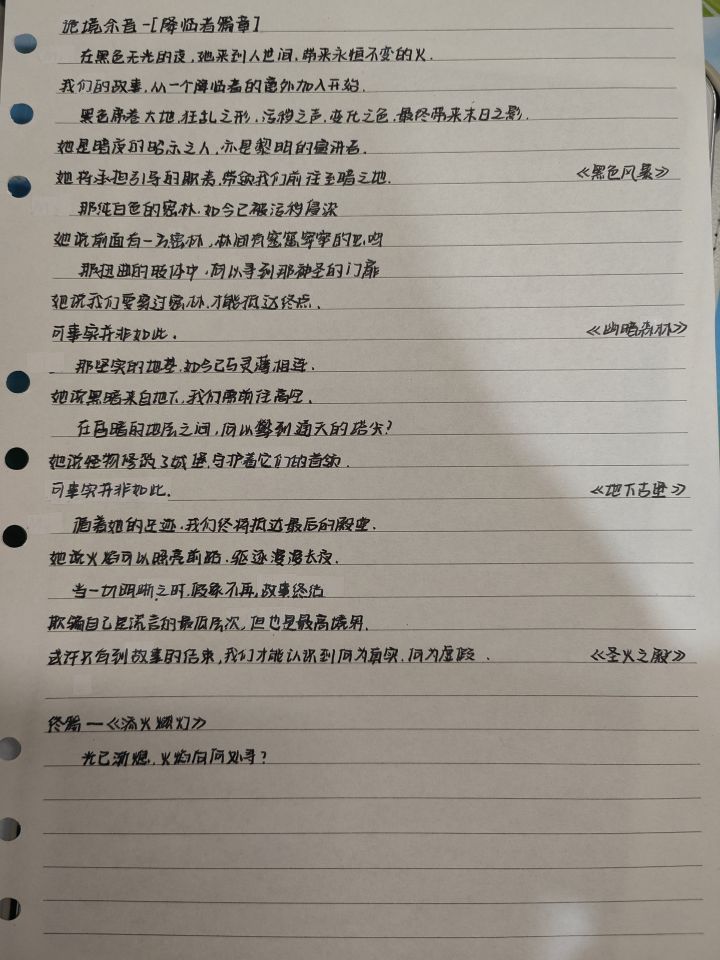 诡境余音-[降临者篇章]
在黑色无光的夜,她来到人世间,带来永恒不变的火.
我们的故事,从一个降临者的意外加入开始.
黑色席卷大地.狂乱之形,污秽之声,变化之色.最终带来末日之影.
她是暗夜的昭示之人,亦是黎明的宣讲者.
她将承担引导的职责,带领我们前往至暗之地.
《黑色风暴》
那纯白色的密林.如今已被污秽侵染
她说前面有一方密林,林间有窸窸窣窣的回响
那扭曲的肢体中,何以寻到那神圣的门扉
她说我们要穿过密林,才能抵达终点.
可事实并非如此.
《幽暗森林》
那坚实的地基,如今已与灵薄相连.
她说黑暗来自地下,我们需前往高空.
在昏暗的地层之间,何以攀到通天的塔尖?
她说怪物修筑了城堡,守护着它们的首领.
可事实并非如此.
《地下古堡》
循着她的足迹,我们终将抵达最后的殿堂.
她说火焰可以照亮前路,驱逐漫漫长夜.
当一切明晰之时,假象不再,故事终结
欺骗自己是谎言的最低层次,但也是最高境界.
或许只有到故事的结束,我们才能认识到何为真实,何为虚假.
《圣火之殿》
终焉—《流火燃灯》
光已渐熄,火焰向何处寻?